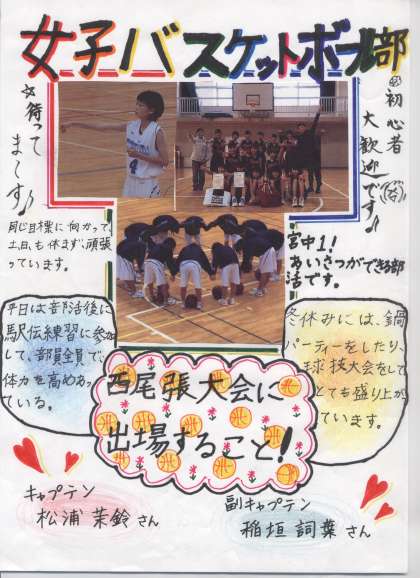 女子バスケットボール部
☆待って
ま〜す♪
初心者
大歓迎です♪
同じ目標に向かって、
土日も休まず、頑張
っています。
宮中1!
あいさつができる部
活です。
平日は部活後に
駅伝練習に参加
して、部員全員で
体力を高めあっ
ている。
冬休みには、鍋
パーティーをしたり、
球技大会をして
とても盛り上がっ
ています。
西尾張大会に
出場すること!
キャプテン
松浦茉鈴さん
副キャプテン
稲垣詞葉さん